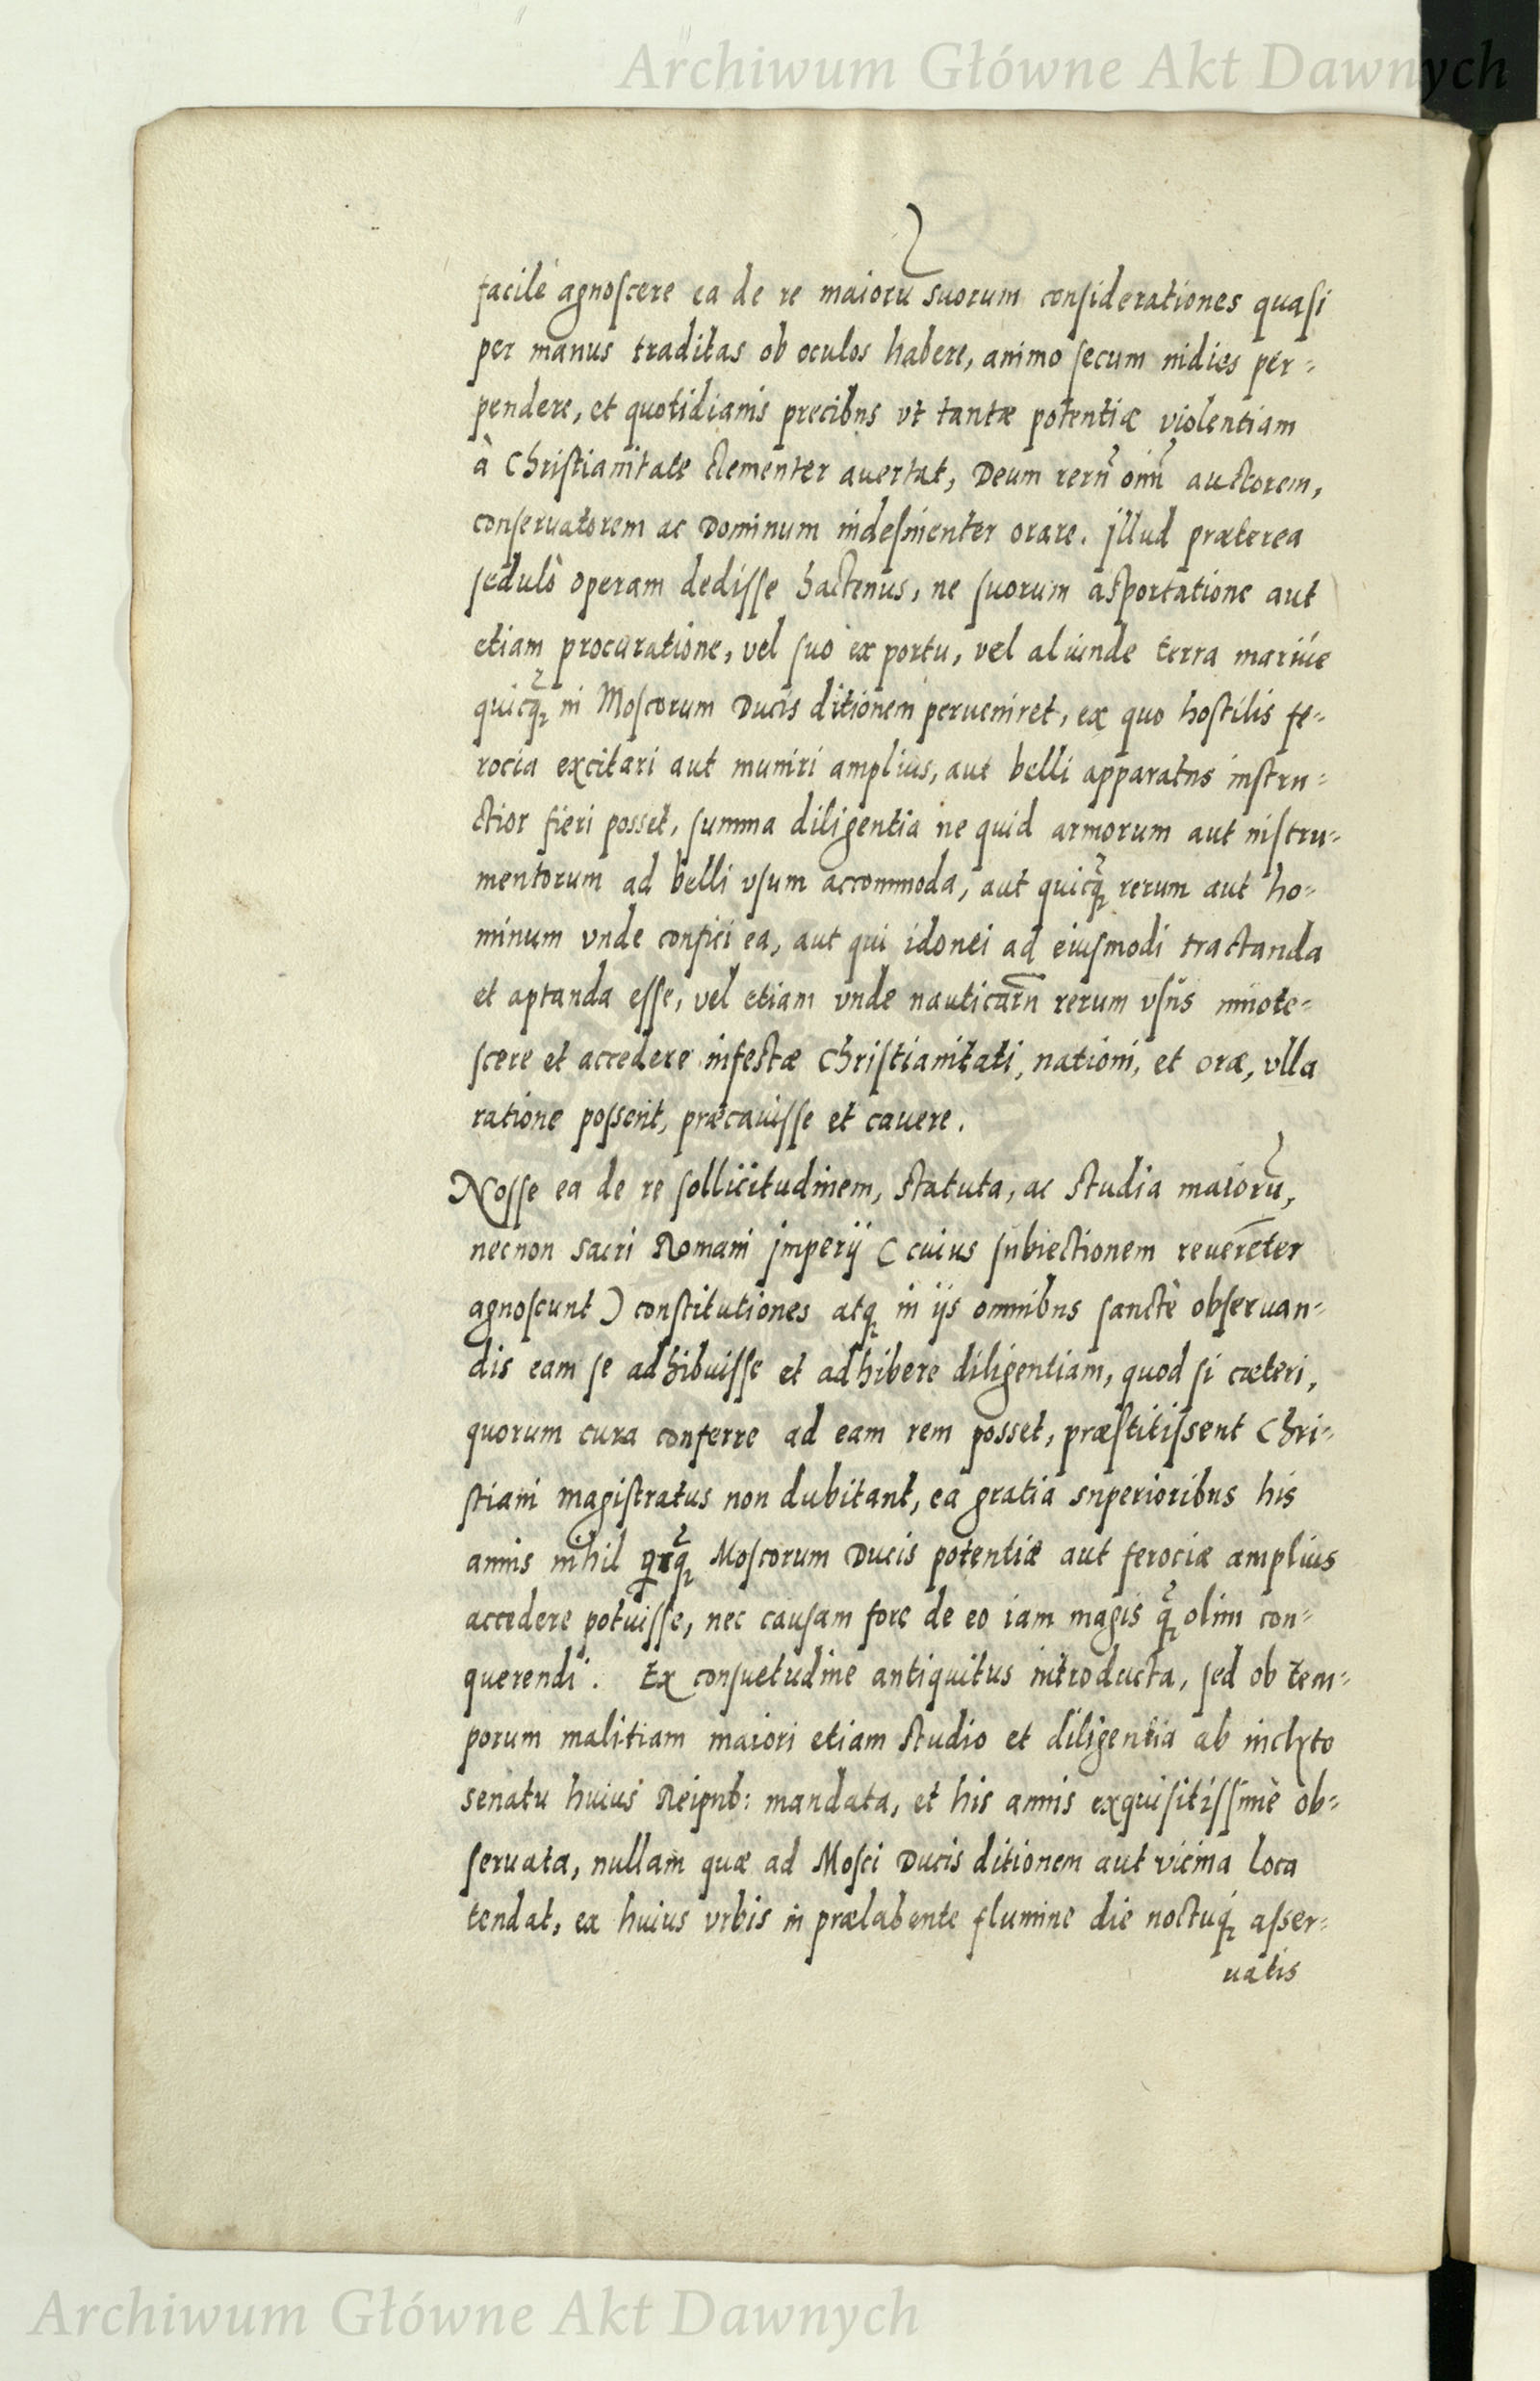 Archiwum Główne Akt Dawnych
facilè agnoscere ea de re maiorū suorum considerationes quasi
per manus traditas ob oculos habere, animo secum indies per-
pendere, et quotidianis precibus vt tantæ potentiæ violentiam
à Christianitate clementer auertat, Deum rerū oīm auctorem,
conseruatorem ac Dominum indesinenter orare. Jllud præterea
sedulò operam dedisse hactenus, ne suorum asportatione aut
etiam procuratione, vel suo ex portu, vel aliunde terra mariúe
quicq̃ in Moscorum Ducis ditionem perueniret, ex quo hostilis fe-
rocia excitari aut muniri amplius, aut belli apparatus instru-
ctior fieri posset, summa diligentia ne quid armorum aut instru-
mentorum ad belli vsum accommoda, aut quicq̃ rerum aut ho-
minum vnde confici ea, aut qui idonei ad eiusmodi tractanda
et aptanda esse, vel etiam vnde nauticarū rerum vsus innote-
scere et accedere infestæ Christianitati, nationi, et oræ, vlla
ratione possent, præcauisse et cauere.
Nosse ea de re sollicitudinem, statuta, ac studia maiorū,
necnon sacri Romani jmperij (cuius subiectionem reuerēter
agnoscunt) constitutiones atq; in ijs omnibus sanctè obseruan-
dis eam se adhibuisse et adhibere diligentiam, quod si cæteri,
quorum cura conferre ad eam rem posset, præstitissent Chri-
stiani magistratus non dubitant, ea gratia superioribus his
annis nihil Moscorum Ducis potentiæ aut ferociæ amplius
accedere potuisse, nec causam fore de eo iam magis q̃ olim con-
querendi. Ex consuetudine antiquitus introducta, sed ob tem-
porum malitiam maiori etiam studio et diligentia ab inclyto
senatu huius Reipub: mandata, et his annis exquisitissimè ob-
seruata, nullam quæ ad Mosci Ducis ditionem aut vicina loca
tendat, ex huius vrbis in prælabente flumine die noctuq; asser-
uatis
Archiwum Główne Akt Dawnych